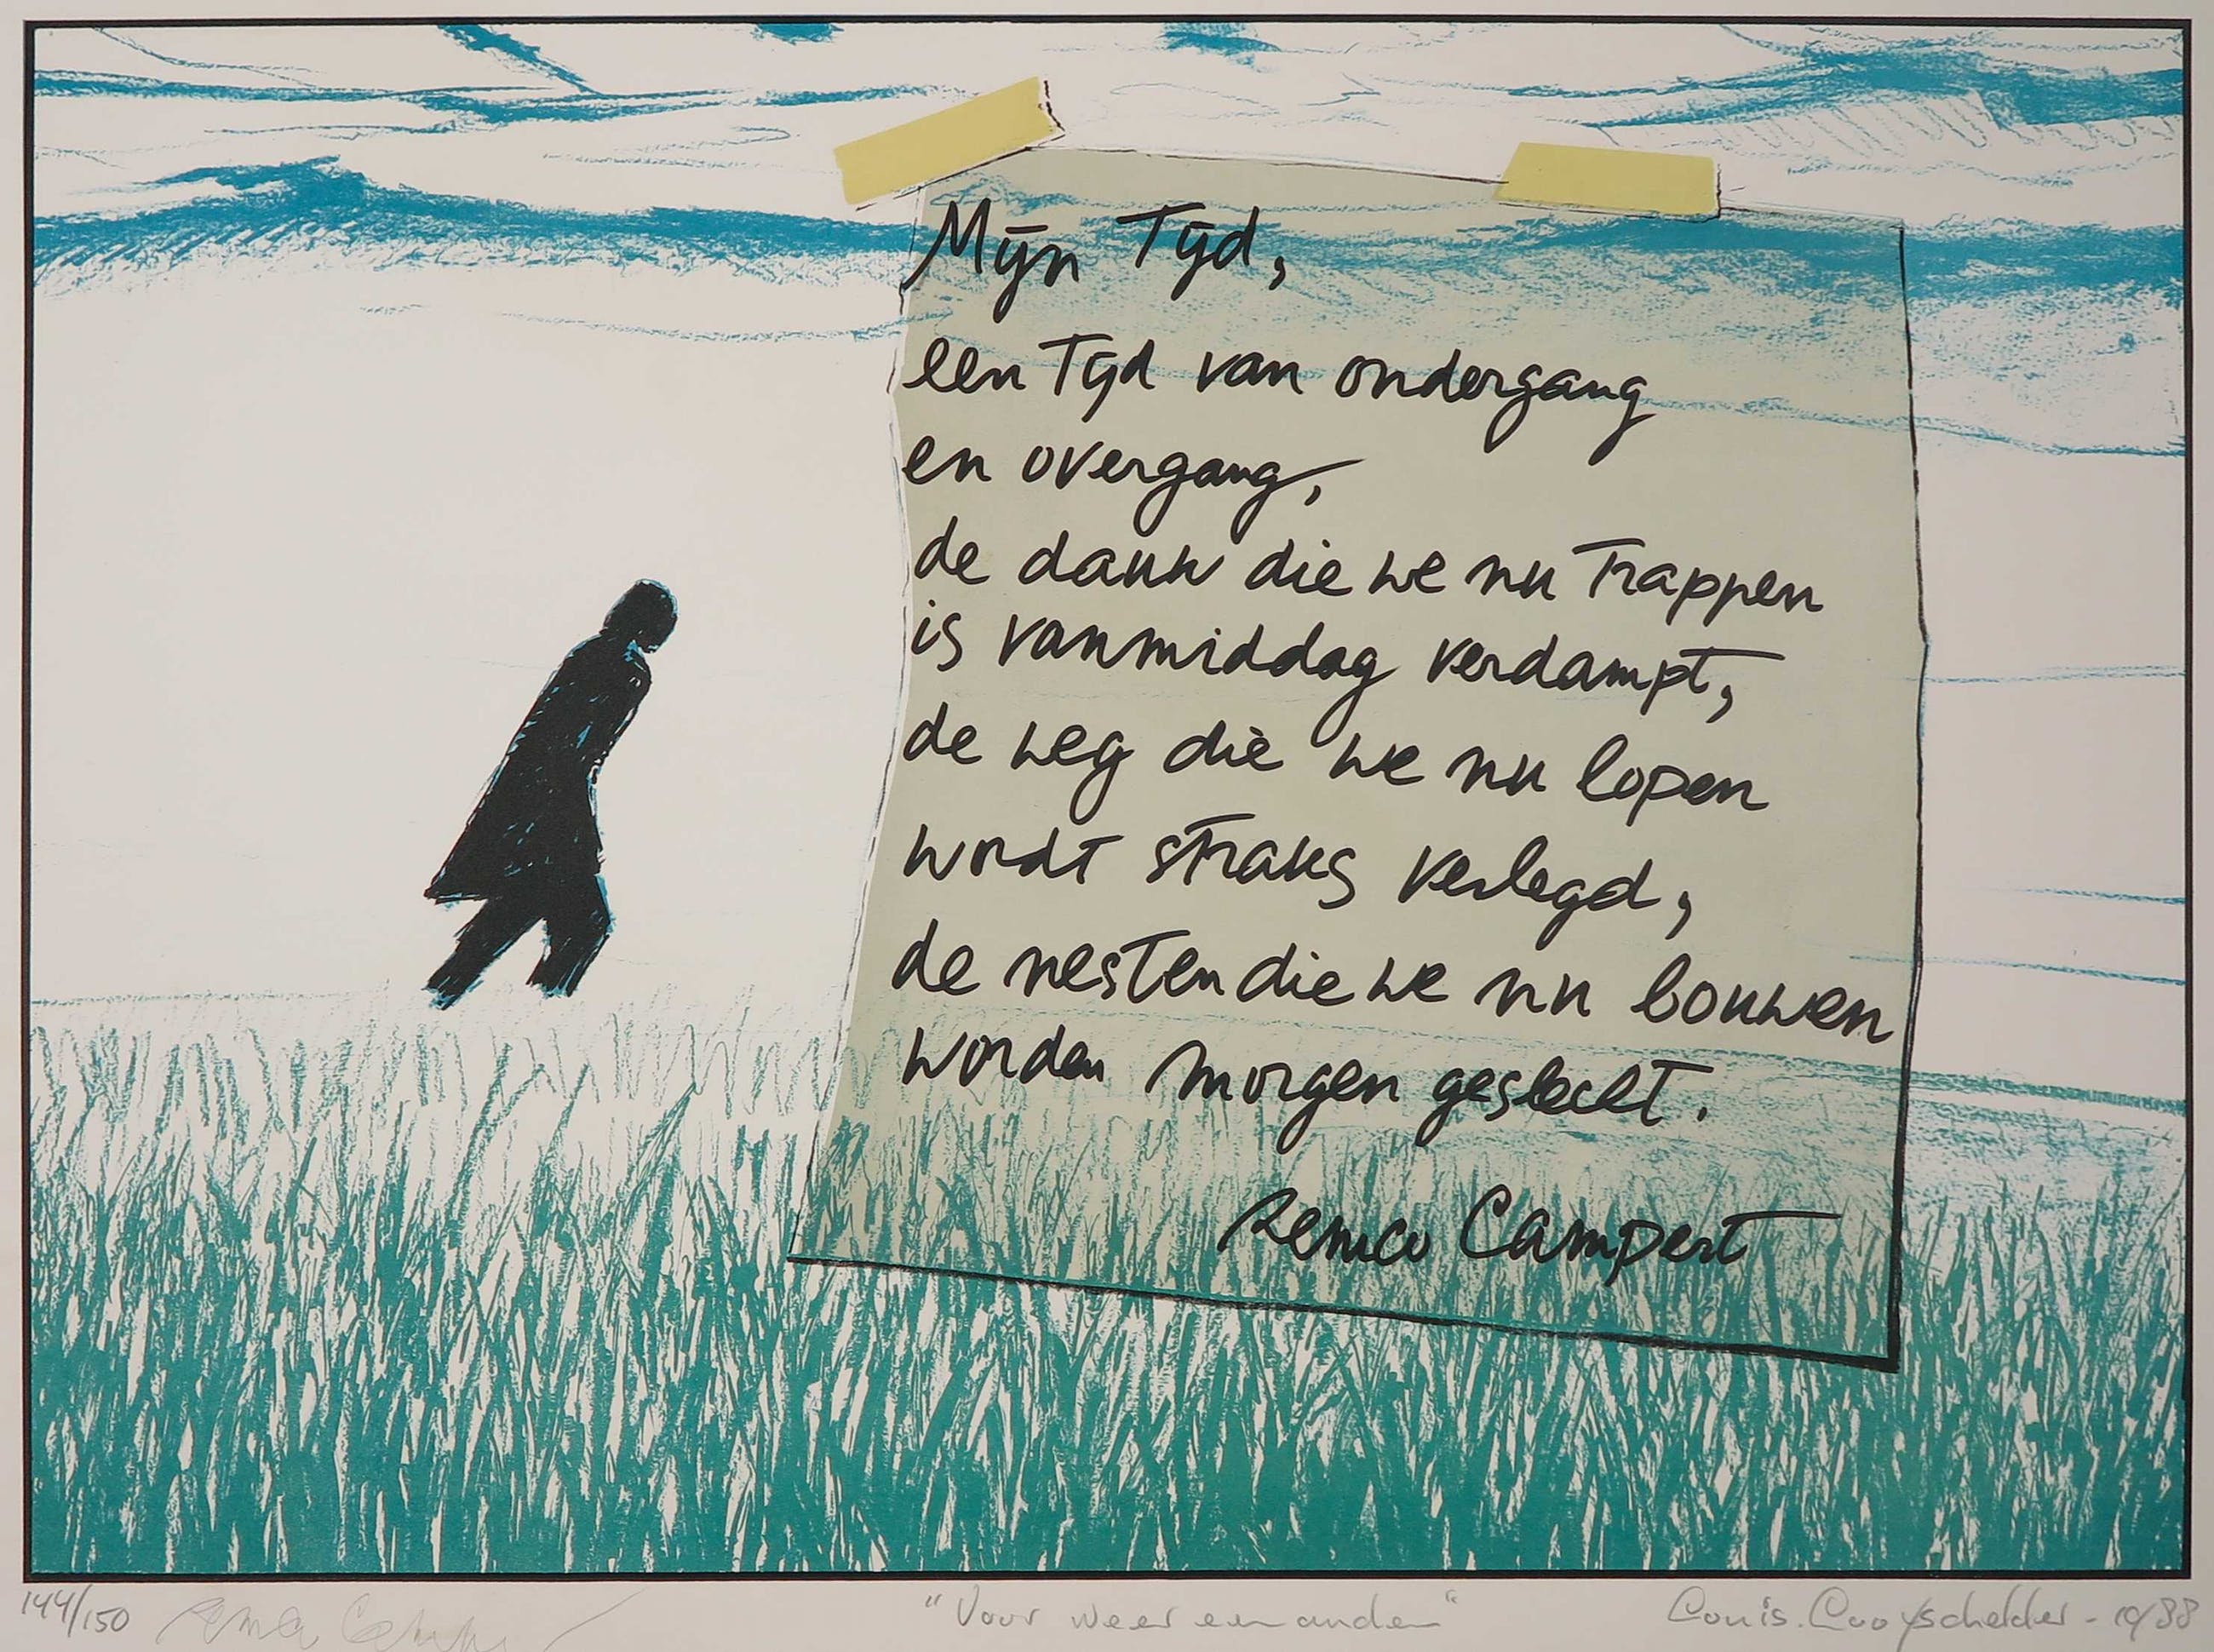 Mijn Tijd,
een Tijd van ondergang
en overgang,
de dauw die we nu Trappen
is vanmiddag verdampt,
de weg die we nu lopen
wordt straks verlegd,
de nesten die we nu bouwen
worden morgen geslecht.
Remco Campert
144/150 Remco Campert "Voor weer een ander" Louis. Cooyschelder - 1988